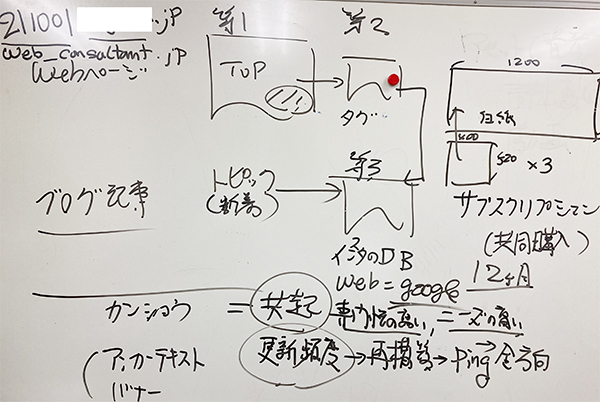 211001 .jp
web_consultant.jp
Webページ
第1
TOP
第2
タグ
1200
白紙
400
420 ×3
サブスクリプション
(共同購入)
ブログ記事
トピック
(新着)
第3
DB
web = google 12ヶ月
カンショウ = 共起 の高い, = の高い
アンカーテキスト
バナー
更新頻度→再構築→ping全方向